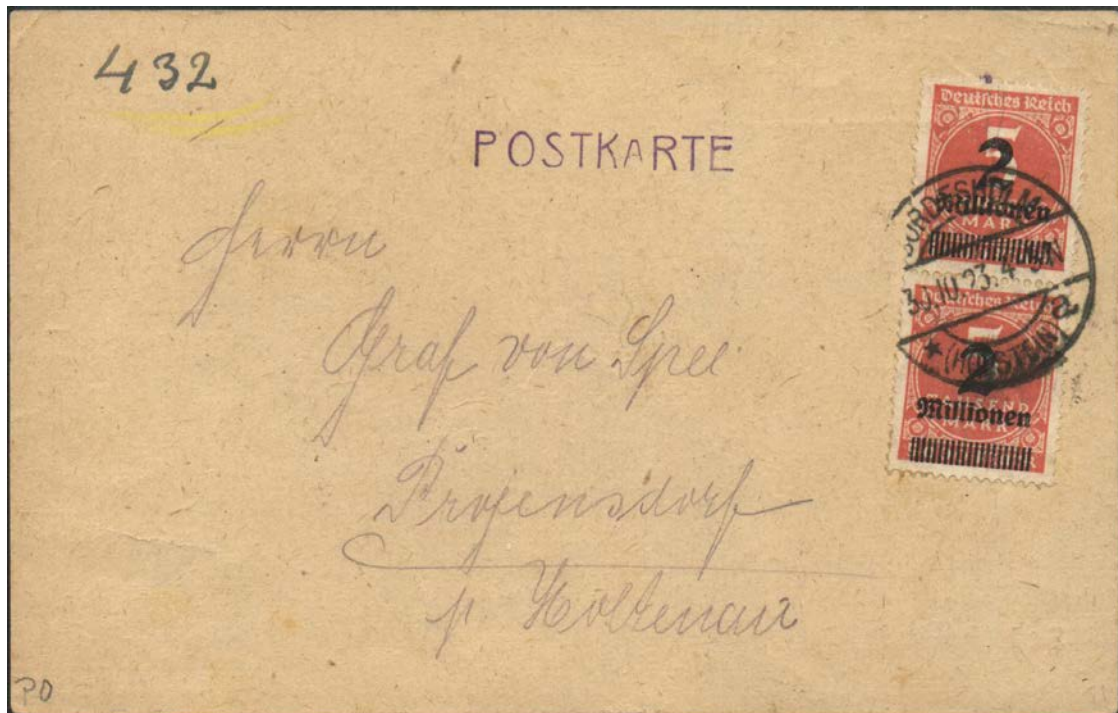 432
POSTKARTE
Deutsches Reich
5
2
Millionen
MARK
BORDESHOLM
30.10.23. 4-5N
* (HOLSTEIN) a
Deutsches Reich
5
2
TAUSEND
Millionen
MARK
Herrn
Graf von Spee
Projensdorf
p. Holtenau